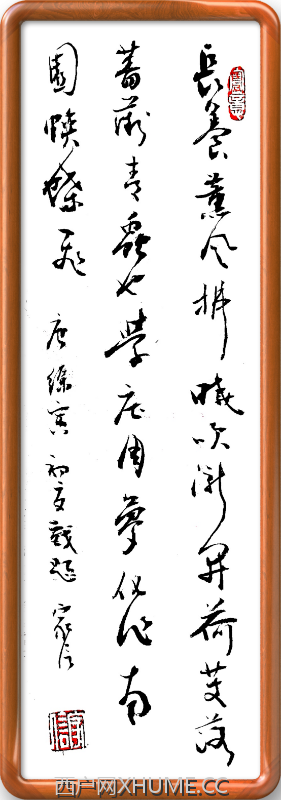 長養薰风拂曉吹漸開荷芰落
薔薇青蟲也學庄周夢化作南
園蛱蝶飛 唐徐寅初夏戲題
西户网XHUME.CC